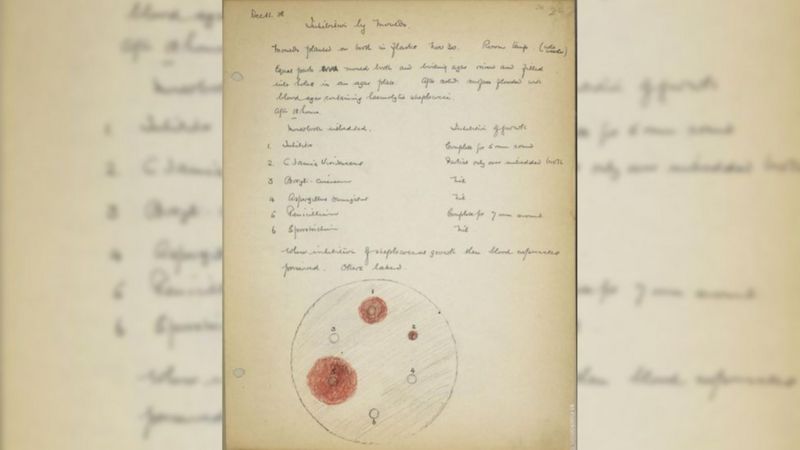 Dec 11. 28
Inhibition by moulds.
Moulds planted on broth in flasks Nov 30. Room temp
Equal parts mould broth and melting agar mixed and filled
into holes in an agar plate. After solid surface flooded with
blood agar containing haemolytic streptococci.
After 18 hours
Mould broth imbedded. Inhibition of growth
1. Complete for 5 mm round
2. Partial only over imbedded broth
3 nil
4 Aspergillus nil
5 Penicillium Complete for 7 mm around
6 Sporotrichum nil
When inhibition of streptococcal growth then blood
preserved. Others laked
1
2
3
4
5
6